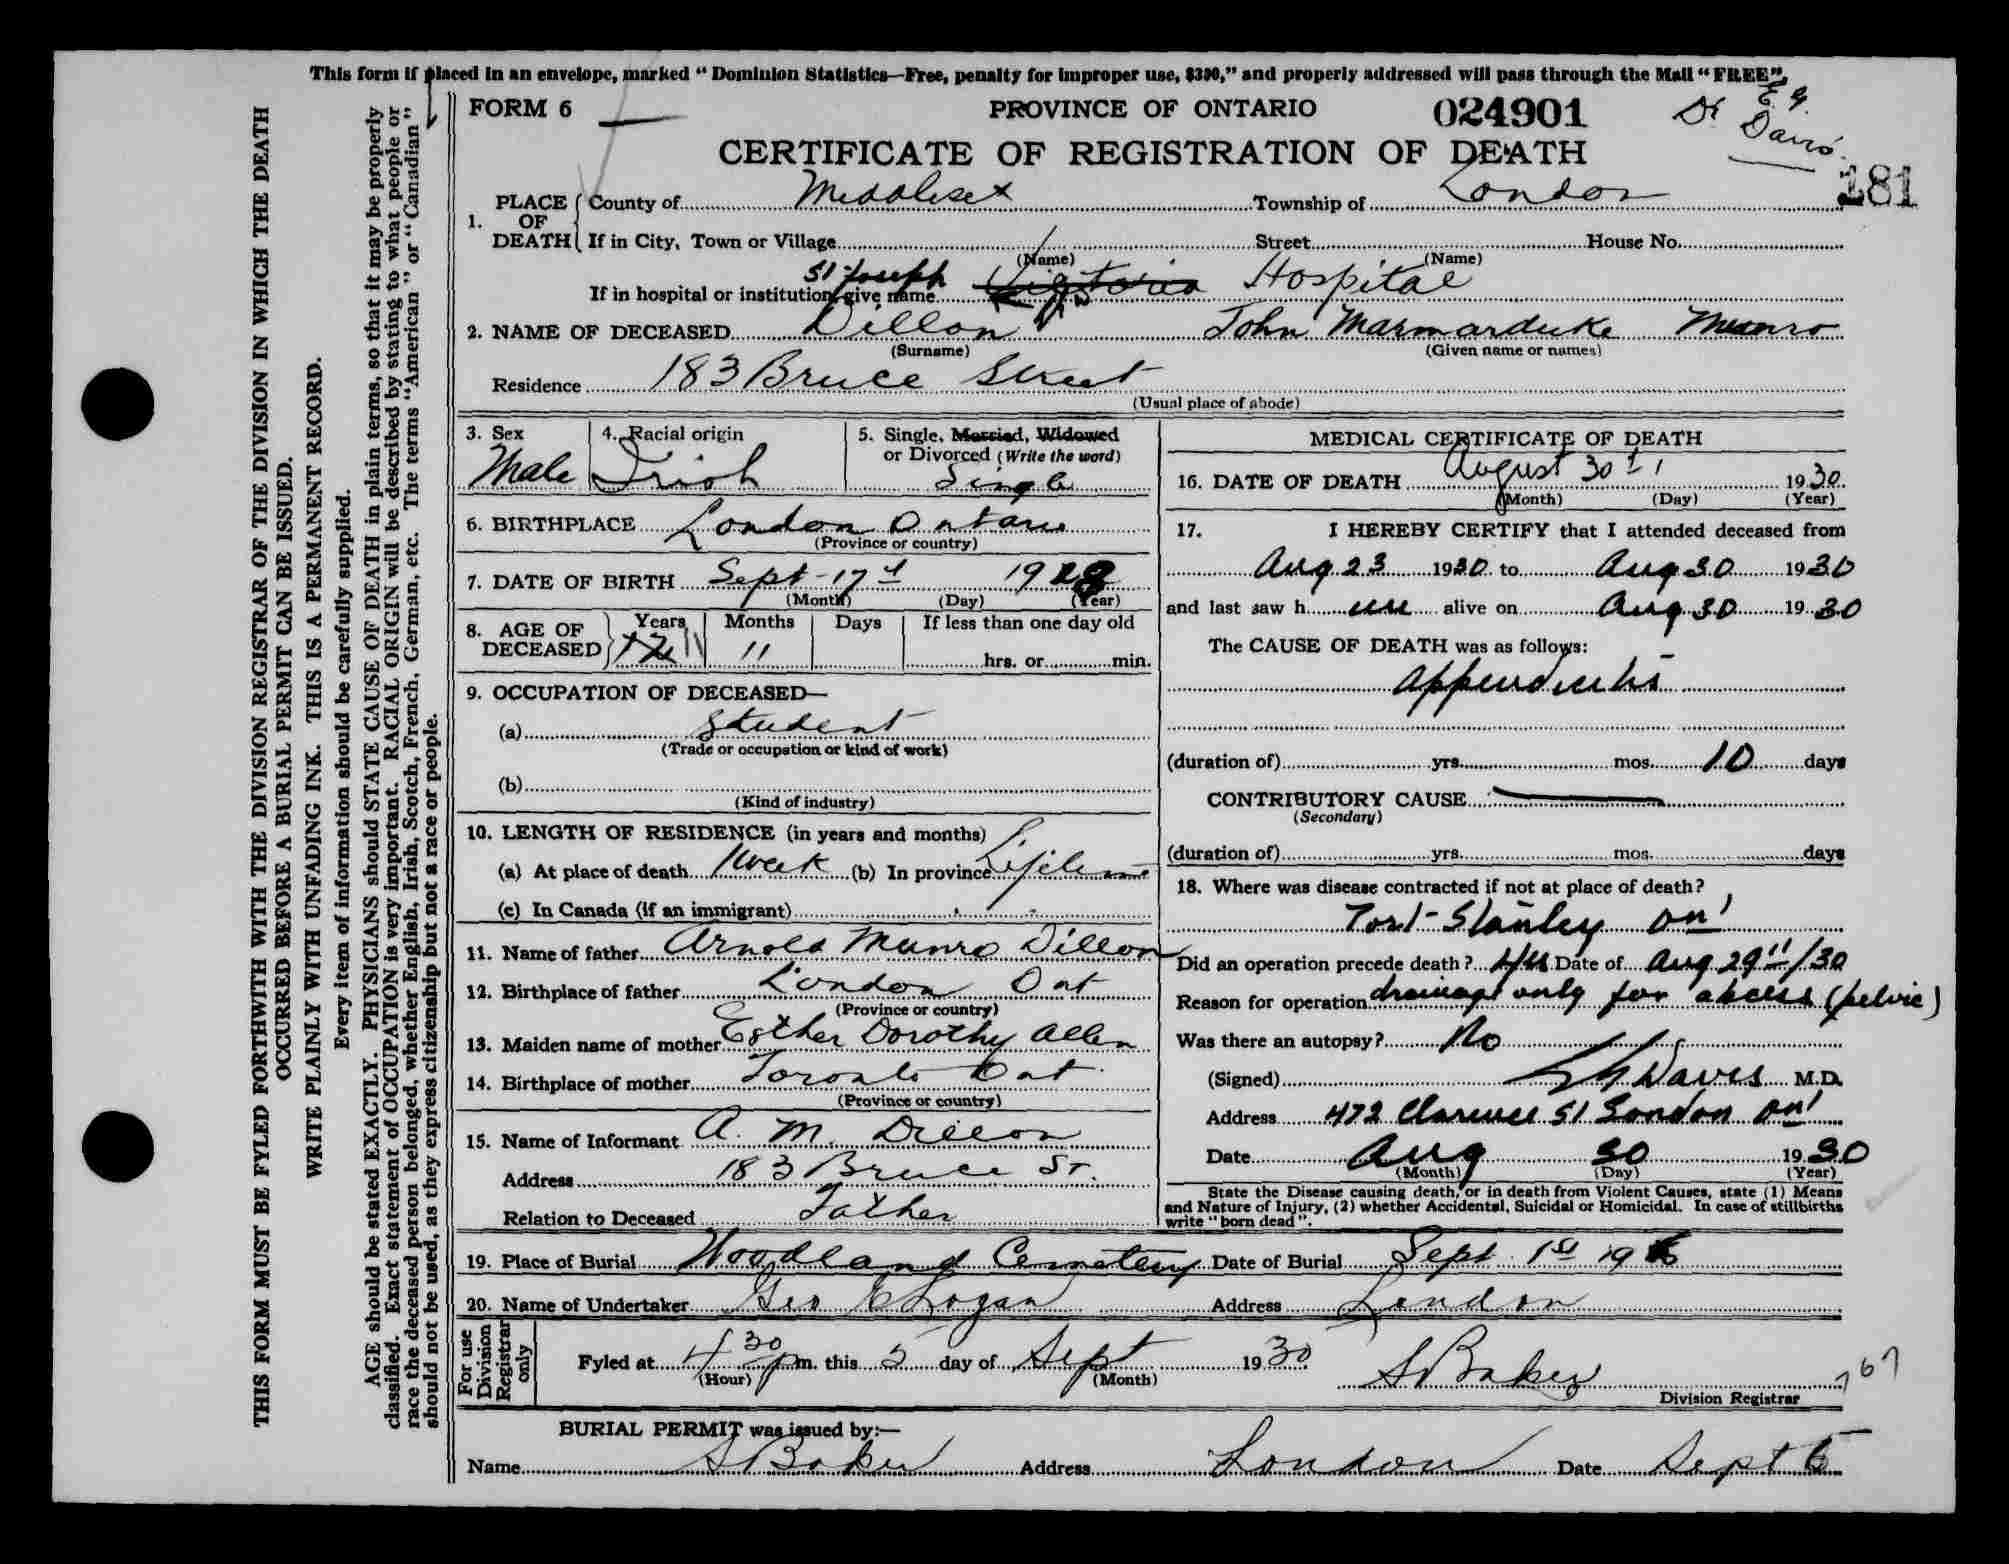 This form if placed in an envelope, marked "Dominion Statistics—Free, penalty for improper use, $300," and properly addressed will pass through the Mail "FREE".
FORM 6
PROVINCE OF ONTARIO
024901
Dr E. G. Davis
CERTIFICATE OF REGISTRATION OF DEATH
181
1. PLACE OF DEATH
County of Middlesex Township of London
If in City, Town or Village Street House No.
(Name) (Name)
If in hospital or institution give name St Joseph Victoria Hospital
2. NAME OF DECEASED Dillon John Marmarduke Munro
(Surname) (Given name or names)
Residence 183 Bruce Street
(Usual place of abode)
3. Sex
Male
4. Racial origin
Irish
5. Single, Married, Widowed
or Divorced (Write the word)
Single
6. BIRTHPLACE London Ontario
(Province or country)
7. DATE OF BIRTH Sept 17th 19
(Month) (Day) (Year)
8. AGE OF DECEASED
Years Months Days If less than one day old
11 11 hrs. or min.
9. OCCUPATION OF DECEASED—
(a) Student
(Trade or occupation or kind of work)
(b)
(Kind of industry)
10. LENGTH OF RESIDENCE (in years and months)
(a) At place of death 1 week (b) In province Lifetime
(c) In Canada (if an immigrant)
11. Name of father Arnold Munro Dillon
12. Birthplace of father London Ont
(Province or country)
13. Maiden name of mother Esther Dorothy Allen
14. Birthplace of mother Toronto Ont
(Province or country)
15. Name of Informant A. M. Dillon
Address 183 Bruce St.
Relation to Deceased Father
MEDICAL CERTIFICATE OF DEATH
16. DATE OF DEATH August 30th 1930
(Month) (Day) (Year)
17. I HEREBY CERTIFY that I attended deceased from
Aug 23 1930 to Aug 30 1930
and last saw h im alive on Aug 30 1930
The CAUSE OF DEATH was as follows:
Appendicitis
(duration of) yrs. mos. 10 days
CONTRIBUTORY CAUSE —
(Secondary)
(duration of) yrs. mos. days
18. Where was disease contracted if not at place of death?
Port Stanley Ont
Did an operation precede death? Yes Date of Aug 29th/30
Reason for operation drainage only for abcess (pelvic)
Was there an autopsy? No
(Signed) E G Davis M.D.
Address 472 Clarence St London Ont
Date Aug 30 1930
(Month) (Day) (Year)
State the Disease causing death, or in death from Violent Causes, state (1) Means
and Nature of Injury, (2) whether Accidental, Suicidal or Homicidal. In case of stillbirths
write "born dead".
19. Place of Burial Woodland Cemetery Date of Burial Sept 1st 19
20. Name of Undertaker Geo E Logan Address London
For use Division Registrar only
Fyled at 4 30 p m. this 5 day of Sept 1930 S Baker
(Hour) (Month) Division Registrar
767
BURIAL PERMIT was issued by:—
Name S Baker Address London Date Sept 5
THIS FORM MUST BE FYLED FORTHWITH WITH THE DIVISION REGISTRAR OF THE DIVISION IN WHICH THE DEATH
OCCURRED BEFORE A BURIAL PERMIT CAN BE ISSUED.
WRITE PLAINLY WITH UNFADING INK. THIS IS A PERMANENT RECORD.
Every item of information should be carefully supplied.
AGE should be stated EXACTLY. PHYSICIANS should STATE CAUSE OF DEATH in plain terms, so that it may be properly
classified. Exact statement of OCCUPATION is very important. RACIAL ORIGIN will be described by stating to what people or
race the deceased person belonged, whether English, Irish, Scotch, French, German, etc. The terms "American" or "Canadian"
should not be used, as they express citizenship but not a race or people.